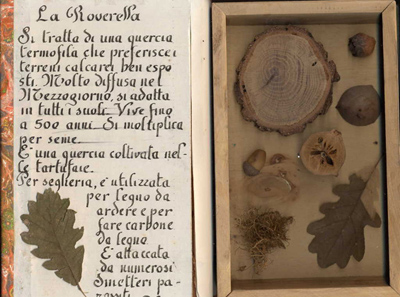 La Roverella
Si tratta di una quercia
termofila che preferisce i
terreni calcarei ben espo
sti. Molto diffusa nel
Mezzogiorno, si adatta
in tutti i suoli. Vive fino
a 500 anni. Si moltiplica
per seme.
E' una quercia coltivata nel-
le tartufaie.
Per segheria, e' utilizzata
per legno da
ardere e per
fare carbone
da legna.
E' attaccata
da numerosi
insetteri pa-